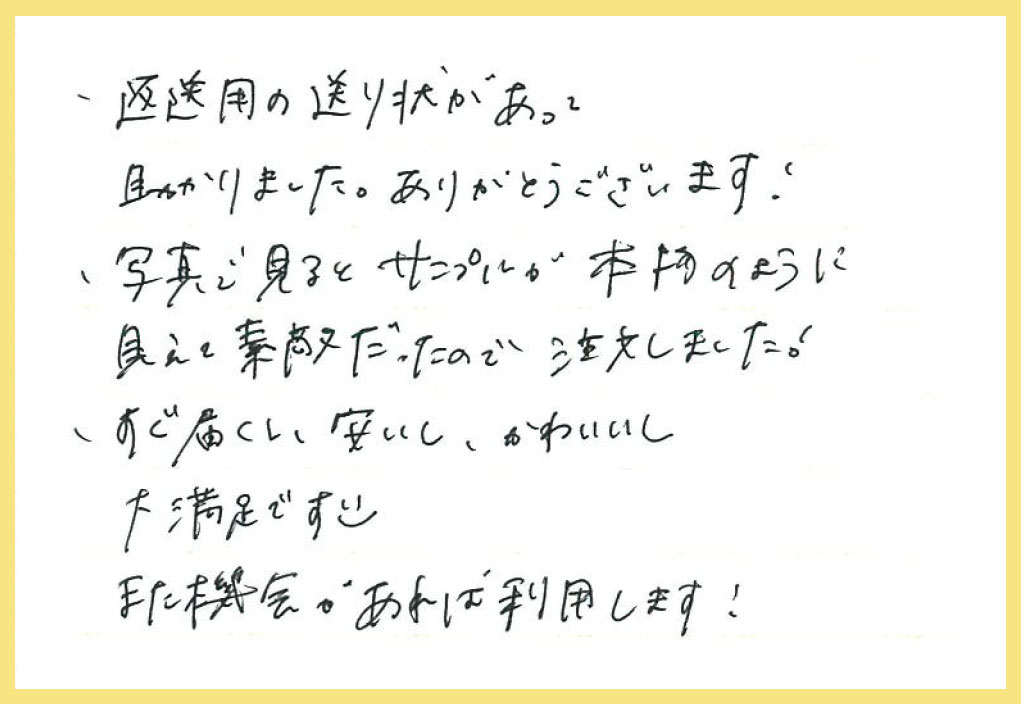 、返送用の送り状があって
助かりました。ありがとうございます!
、写真で見るとサンプルが本物のように
見えて素敵だったので注文しました。
、すぐ届くし、安いし、かわいいし
大満足です
また機会があれば利用します!